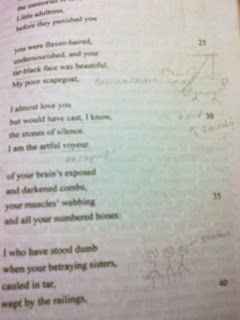 the memories of
Little adultress,
before they punished you
you were flaxen-haired,
25
undernourished, and your
tar-black face was beautiful,
My poor scapegoat,
I almost love you
but would have cast, I know,
30
the stones of silence.
I am the artful voyeur
of your brain's exposed
and darkened combs,
your muscles' webbing
35
and all your numbered bones:
I who have stood dumb
when your betraying sisters,
cauled in tar,
40
wept by the railings,